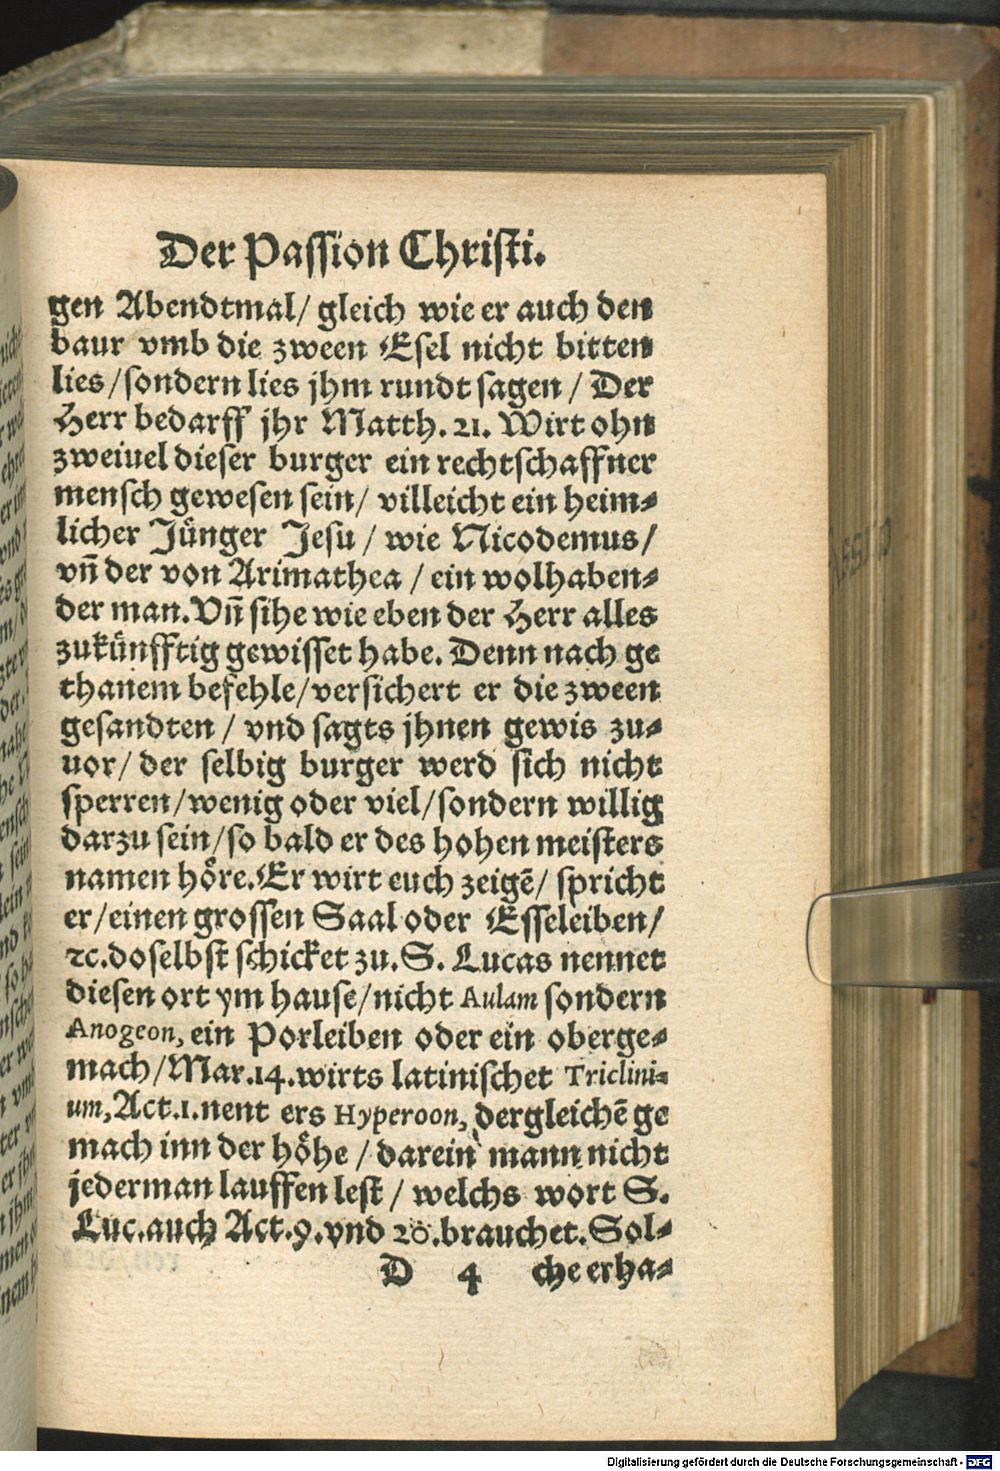 Der Passion Christi.
gen Abendtmal/ gleich wie er auch den
baur vmb die zween Esel nicht bitten
lies/sondern lies jhm rundt sagen/ Der
Herr bedarff jhr Matth. 21. Wirt ohn
zweiuel dieser burger ein rechtschaffner
mensch gewesen sein/ villeicht ein heim⸗
licher Jünger Jesu/ wie Nicodemus/
vñ der von Arimathea/ ein wolhaben⸗
der man. Vñ sihe wie eben der Herr alles
zukünfftig gewisset habe. Denn nach ge
thanem befehle/versichert er die zween
gesandten/ vnd sagts jhnen gewis zu⸗
uor/ der selbig burger werd sich nicht
sperren/wenig oder viel/sondern willig
darzu sein/so bald er des hohen meisters
namen höre. Er wirt euch zeigẽ/ spricht
er/einen grossen Saal oder Esseleiben/
ꝛc. doselbst schicket zu. S. Lucas nennet
diesen ort ym hause/nicht Aulam sondern
Anogeon, ein Porleiben oder ein oberge⸗
mach/Mar. 14. wirts latinischet Triclini⸗
um, Act. 1. nent ers Hyperoon, dergleichẽ ge
mach inn der höhe/ darein mann nicht
jederman lauffen lest/ welchs wort S.
Luc. auch Act. 9. vnd 20. brauchet. Sol⸗
D 4 che erha⸗
Digitalisierung gefördert durch die Deutsche Forschungsgemeinschaft - DFG